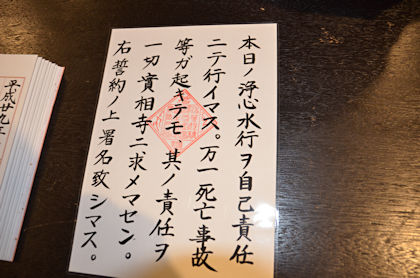 本日ノ浄心水行ヲ自己責任
ニテ行イマス。万一死亡事故
等ガ起キテモ、其ノ責任ヲ
一切實相寺ニ求メマセン。
右誓約ノ上署名致シマス。
平成廿九